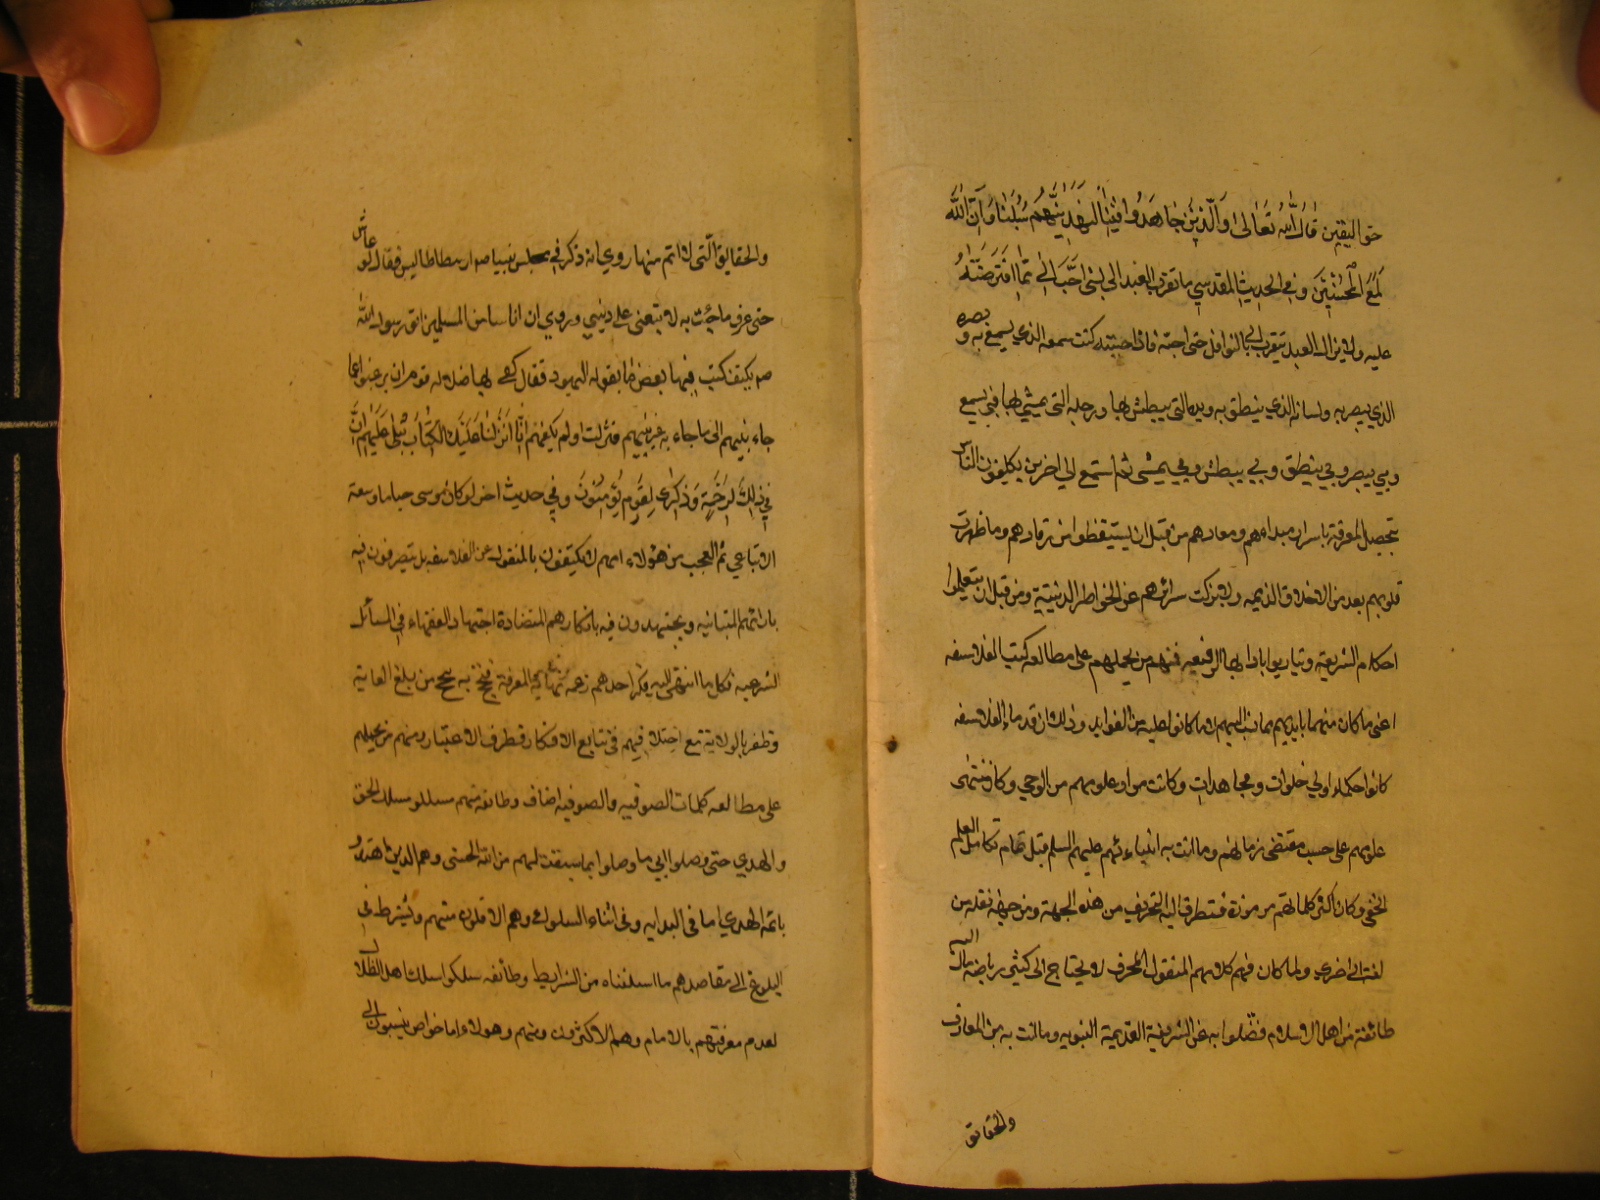 حق اليقين قال الله تعالى والذين جاهدوا فينا لنهدينهم سبلنا وان الله
لمع المحسنين وفي الحديث القدسي ما تقرب العبد الي بشئ احب الي مما افترضته
عليه ولا يزال العبد يتقرب الي بالنوافل حتى احبه فاذا احببته كنت سمعه الذي يسمع به وبصره
الذي يبصر به ولسانه الذي ينطق به ويده التي يبطش بها ورجله التي يمشي بها فبي يسمع
وبي يبصر وبي ينطق وبي يبطش وبي يمشي ثم استمع الى اخرين يكلفون الناس
بتحصيل المعرفة باسرار مبداءهم ومعادهم من قبل ان يستيقظوا من رقادهم وما ظهرت
قلوبهم بعد من الاخلاق الذميمه ولا تزكت سرائرهم عن الخواطر الدنيئية ومن قبل ان يتعلموا
احكام الشريعة ويتاربوا بادابها الرفيعه فمنهم من يحملهم على مطالعه كتب الفلاسفه
اعني ما كان منهما بايديهم مما نسب اليهم لا ما كانوا عليه من الفوايد وذلك ان قدماء الفلاسفه
كانوا حكماء اولي خلوات ومجاهدات وكانت مواد علومهم من الوحي وكان منتهى
علومهم على حسب مقتضى زمانهم وما اتت به انبياءهم عليهم السلم قبل تمام تكامل العلم
الحق وكان اكثر كلماتهم مرموزة فتطرق اليه التحريف من هذه الجهة ومن جهة نقله من
لغة الى اخرى ولما كان فهم كلامهم المنقول المحرف لا يحتاج الى كثير رياضه مال اليه
طائفة من اهل الاسلام فضلوا به عن الشريعة القديمة النبويه وما اتت به من المعارف
والحقايق
والحقايق التي لا اتم منها روي انه ذكر في مجلس نبينا ص ارسطاطاليس فقال لو عاش
حتى عرف ما جئت به لاتبعني على ديني وروي ان اناسا من المسلمين اتوا رسول الله
ص بكتف كتب فيها بعض ما يقوله اليهود فقال كفى بها ضلاله قوم ان يرغبوا عما
جاء به نبيهم الى ما جاء به غير نبيهم فنزلت اولم يكفهم انا انزلنا عليك الكتاب يتلى عليهم ان
في ذلك لرحمة وذكرى لقوم يؤمنون وفي حديث اخر لو كان موسى حيا ما وسعه
الا اتباعي ثم العجب من هولاء انهم لا يكتفون بالمنقول عن الفلاسفه بل يتصرفون فيه
بارائهم المتباينه ويجتهدون فيه بافكارهم المتضادة اجتهاد الفقهاء في المسائل
الشرعيه فكل ما انتهى اليه فكر احدهم زعمه نهاية المعرفة فبجح به بجح من بلغ الغاية
وظفر بالولاية مع اختلافهم في نتايج الافكار وطرف الاعتبار ومنهم من يحيلهم
على مطالعه كلمات الصوفيه والصوفيه اصناف وطائفه منهم سلكوا مسلك الحق
والهدي حتى وصلوا الى ما وصلوا بما سبقت لهم من الله الحسنى وهم الذين اهتدوا
بائمه الهدي اما في البدايه وفي اثناء السلوك وهم الاقلون منهم ويشترط في
البلوغ الى مقاصدهم ما اسلفناه من الشرايط وطائفه سلكوا مسلك اهل الضلال
لعدم معرفتهم بالامام وهم الاكثرون ومنهم وهولاء اما خواص ينسبون الى